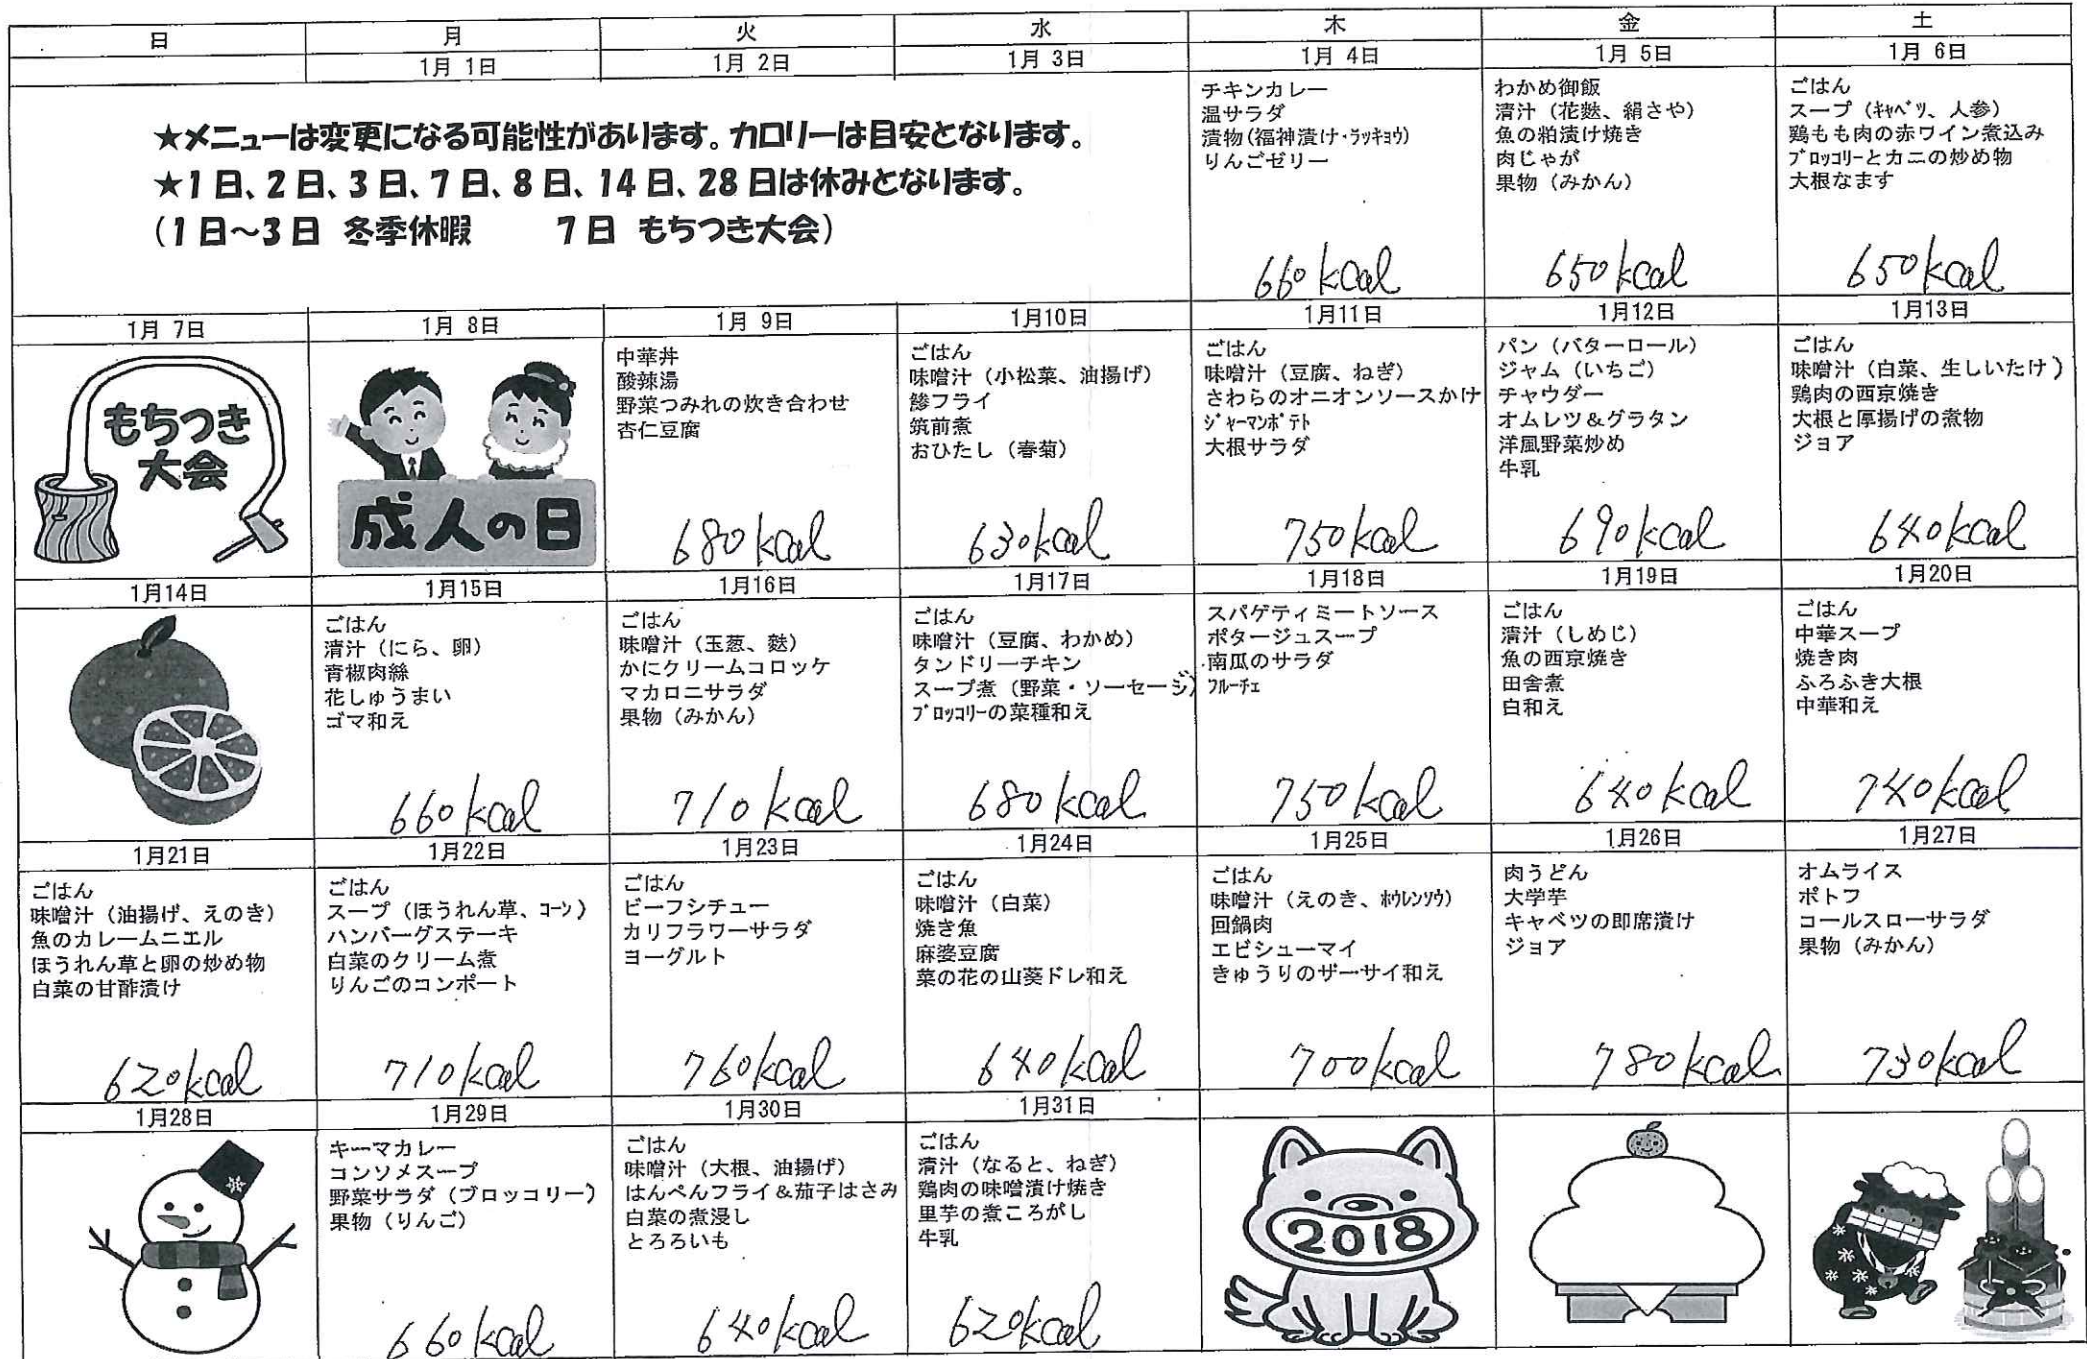 日 月 火 水 木 金 土
1月 1日 1月 2日 1月 3日 1月 4日 1月 5日 1月 6日
★メニューは変更になる可能性があります。カロリーは目安となります。
★1日、2日、3日、7日、8日、14日、28日は休みとなります。
(1日～3日 冬季休暇 7日 もちつき大会)
チキンカレー
温サラダ
漬物(福神漬け・ラッキョウ)
りんごゼリー
660kcal
わかめ御飯
清汁(花麩、絹さや)
魚の粕漬け焼き
肉じゃが
果物(みかん)
650kcal
ごはん
スープ(キャベツ、人参)
鶏もも肉の赤ワイン煮込み
ブロッコリーとカニの炒め物
大根なます
650kcal
1月 7日 1月 8日 1月 9日 1月10日 1月11日 1月12日 1月13日
もちつき
大会
成人の日
中華丼
酸辣湯
野菜つみれの炊き合わせ
杏仁豆腐
680kcal
ごはん
味噌汁(小松菜、油揚げ)
鯵フライ
筑前煮
おひたし(春菊)
630kcal
ごはん
味噌汁(豆腐、ねぎ)
さわらのオニオンソースかけ
ジャーマンポテト
大根サラダ
750kcal
パン(バターロール)
ジャム(いちご)
チャウダー
オムレツ＆グラタン
洋風野菜炒め
牛乳
690kcal
ごはん
味噌汁(白菜、生しいたけ)
鶏肉の西京焼き
大根と厚揚げの煮物
ジョア
640kcal
1月14日 1月15日 1月16日 1月17日 1月18日 1月19日 1月20日
ごはん
清汁(にら、卵)
青椒肉絲
花しゅうまい
ゴマ和え
660kcal
ごはん
味噌汁(玉葱、麩)
かにクリームコロッケ
マカロニサラダ
果物(みかん)
710kcal
ごはん
味噌汁(豆腐、わかめ)
タンドリーチキン
スープ煮(野菜・ソーセージ)
ブロッコリーの菜種和え
680kcal
スパゲティミートソース
ポタージュスープ
南瓜のサラダ
フルーチェ
750kcal
ごはん
清汁(しめじ)
魚の西京焼き
田舎煮
白和え
640kcal
ごはん
中華スープ
焼き肉
ふろふき大根
中華和え
740kcal
1月21日 1月22日 1月23日 1月24日 1月25日 1月26日 1月27日
ごはん
味噌汁(油揚げ、えのき)
魚のカレームニエル
ほうれん草と卵の炒め物
白菜の甘酢漬け
620kcal
ごはん
スープ(ほうれん草、コーン)
ハンバーグステーキ
白菜のクリーム煮
りんごのコンポート
710kcal
ごはん
ビーフシチュー
カリフラワーサラダ
ヨーグルト
760kcal
ごはん
味噌汁(白菜)
焼き魚
麻婆豆腐
菜の花の山葵ドレ和え
640kcal
ごはん
味噌汁(えのき、ホウレンソウ)
回鍋肉
エビシューマイ
きゅうりのザーサイ和え
700kcal
肉うどん
大学芋
キャベツの即席漬け
ジョア
780kcal
オムライス
ポトフ
コールスローサラダ
果物(みかん)
730kcal
1月28日 1月29日 1月30日 1月31日
キーマカレー
コンソメスープ
野菜サラダ(ブロッコリー)
果物(りんご)
660kcal
ごはん
味噌汁(大根、油揚げ)
はんぺんフライ＆茄子はさみ
白菜の煮浸し
とろろいも
640kcal
ごはん
清汁(なると、ねぎ)
鶏肉の味噌漬け焼き
里芋の煮ころがし
牛乳
620kcal
2018